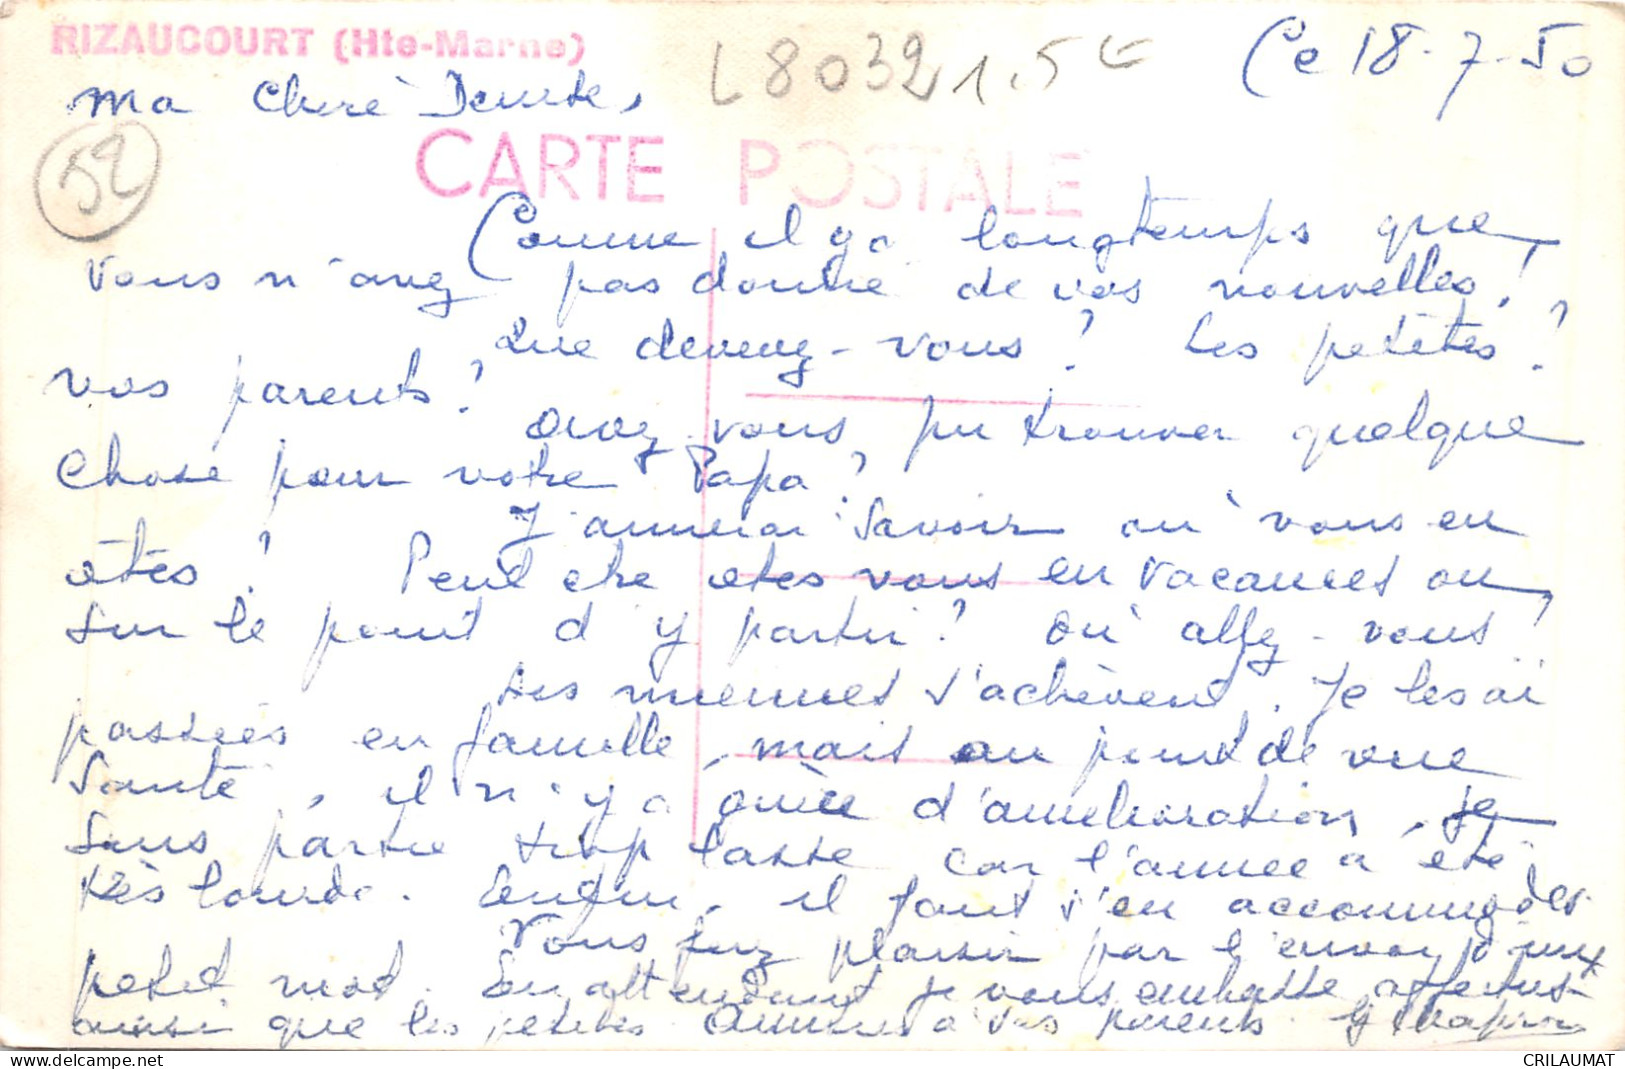 RIZAUCOURT (Hte-Marne)
L8032 1.5 €
Ce 18-7-50
Ma Chère Denise,
52
CARTE POSTALE
Comme il y a longtemps que
vous n'avez pas donné de vos nouvelles!
Que devenez-vous? Les petites?
vos parents?
avez-vous pu trouver quelque
chose pour votre Papa?
J'aimerai savoir où vous en
êtes? Peut être êtes vous en vacances ou
sur le point d'y partir? Où allez-vous?
Les miennes s'achèvent. Je les ai
passées en famille, mais au point de vue
santé, il n'y a guère d'amélioration, je
suis partie trop lasse car l'année a été
très lourde. Enfin, il faut s'en accommoder.
Vous plaisir par l'envoi d'un
petit mot. En attendant je vous embrasse
ainsi que les petites. Amitiés à vos parents.
CRILAUMAT